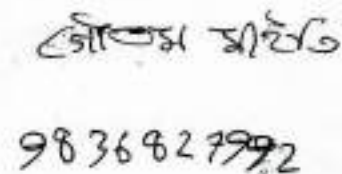 গৌতম মাইতি
9836827992